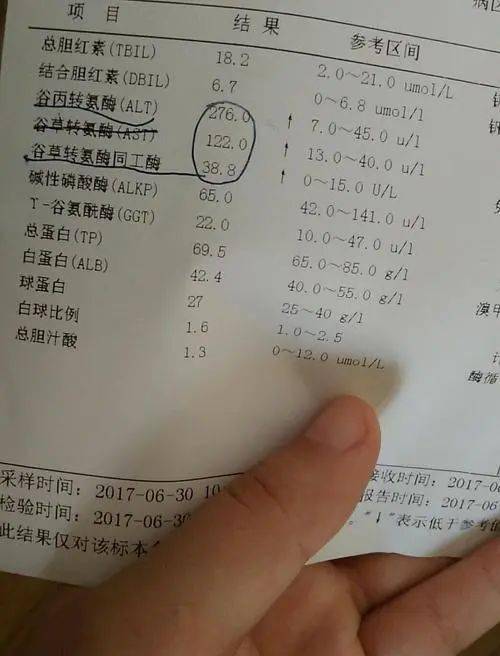 病区
项 目 结 果 参考区间
总胆红素(TBIL) 18.2 2.0~21.0 umol/L
结合胆红素(DBIL) 6.7 0~6.8 umol/l
谷丙转氨酶(ALT) 276.0 ↑ 7.0~45.0 u/l
谷草转氨酶(AST) 122.0 ↑ 13.0~40.0 u/l
谷草转氨酶同工酶 38.8 ↑ 0~15.0 U/L
碱性磷酸酶(ALKP) 65.0 42.0~141.0 u/l
T-谷氨酰酶(GGT) 22.0 10.0~47.0 u/l
总蛋白(TP) 69.5 65.0~85.0 g/l
白蛋白(ALB) 42.4 40.0~55.0 g/l
球蛋白 27 25~40 g/l
白球比例 1.6 1.0~2.5
总胆汁酸 1.3 0~12.0 umol/L
溴甲
酶循
采样时间: 2017-06-30 10 接收时间: 2017-06
检验时间: 2017-06-30 报告时间: 2017-0
此结果仅对该标本 。"↓"表示低于参考值